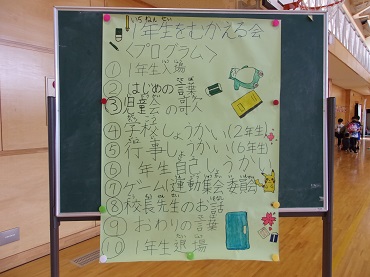 1年生をむかえる会
<プログラム>
① 1年生入場
② はじめの言葉
③ 児童会の歌
④ 学校しょうかい(2年生)
⑤ 行事しょうかい(6年生)
⑥ 1年生自己しょうかい
⑦ ゲーム(運動集会委員会)
⑧ 校長先生のお話
⑨ おわりの言葉
⑩ 1年生退場